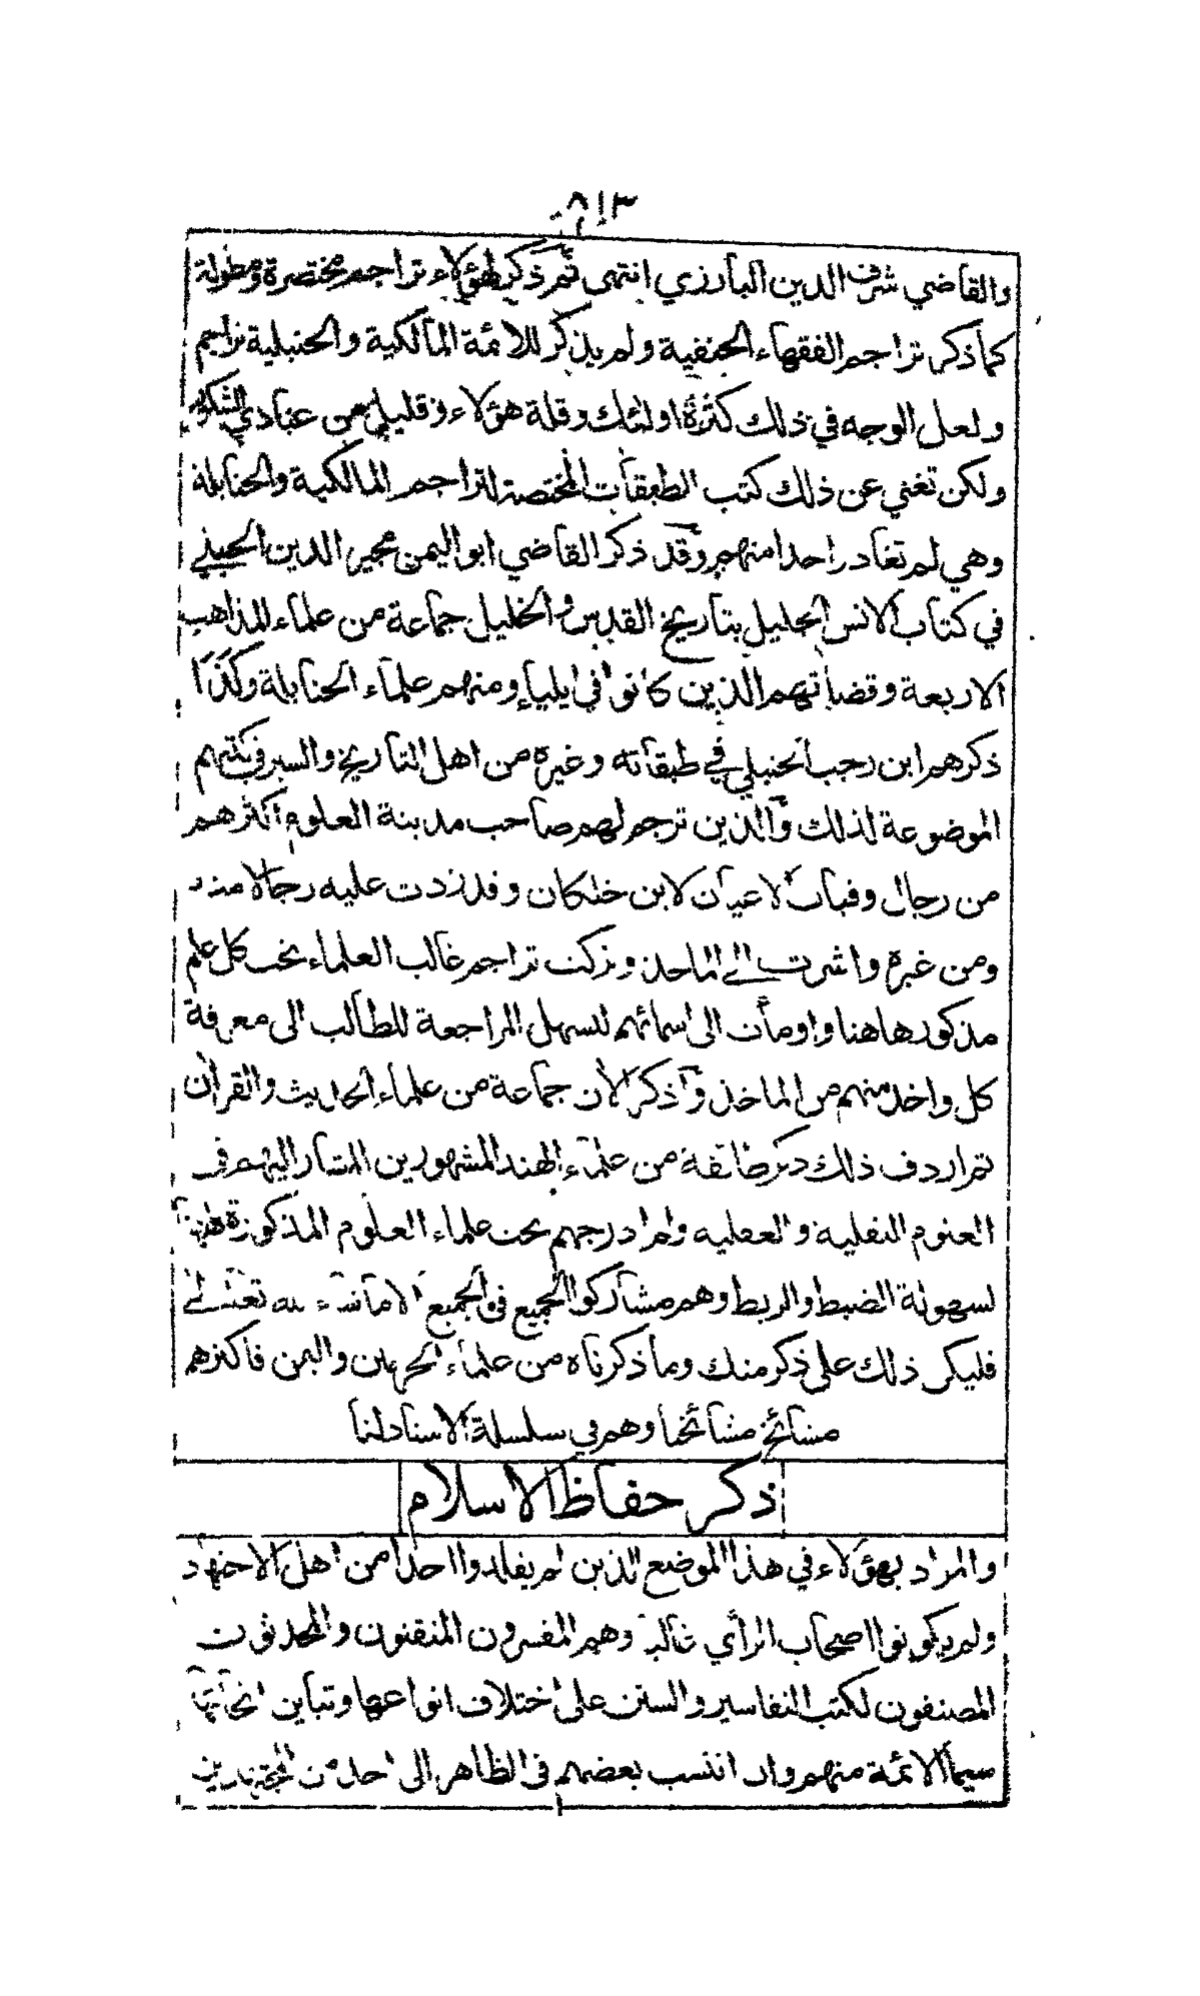 ٨١٣
والقاضي شرف الدين البارزي انتهى ثم ذكر لهؤلاء تراجم مختصرة ومطولة
كما ذكر تراجم الفقهاء الحنفية ولم يذكر للائمة المالكية والحنبلية تراجم
ولعل الوجه في ذلك كثرة اولئك وقلة هؤلاء وقليل من عبادي الشكور
ولكن تغني عن ذلك كتب الطبقات المختصة لتراجم المالكية والحنابلة
وهي لم تغادر احدا منهم وقد ذكر القاضي ابو اليمن مجير الدين الحنبلي
في كتاب الانس الجليل بتاريخ القدس والخليل جماعة من علماء المذاهب
الاربعة وقضاتهم الذين كانوا في ايلياء ومنهم علماء الحنابلة وكذا
ذكرهم ابن رجب الحنبلي في طبقاته وغيره من اهل التاريخ والسير في كتبهم
الموضوعة لذلك والذين ترجم لهم صاحب مدينة العلوم اكثرهم
من رجال وفيات الاعيان لابن خلكان وقد زدت عليه رجالا منه
ومن غيره واشرت الى الماخذ وتركت تراجم غالب العلماء تحت كل علم
مذكور هاهنا واومأت الى اسمائهم لتسهل المراجعة للطالب الى معرفة
كل واحد منهم من الماخذ واذكر الان جماعة من علماء الحديث والقران
ثم اردف ذلك ذكر طائفة من علماء الهند المشهورين المشار اليهم في
العلوم النقلية والعقلية ولم ادرجهم تحت علماء العلوم المذكورة ههنا
لسهولة الضبط والربط وهم مشاركوا الجميع في الجميع الا ما شاء الله تعالى
فليكن ذلك على ذكر منك وما ذكرناه من علماء الحرمين واليمن فاكثرهم
مشائخ مشائخنا وهم في سلسلة الاسناد لنا
ذكر حفاظ الاسلام
والمراد بهؤلاء في هذا الموضع الذين لم يقلدوا احدا من اهل الاجتهاد
ولم يكونوا اصحاب الرأي غالبا وهم المفسرون المتقنون والمحدثون
المصنفون لكتب التفاسير والسنن على اختلاف انواعها وتباين انحائها
سيما الائمة منهم وان انتسب بعضهم في الظاهر الى احد من المجتهدين